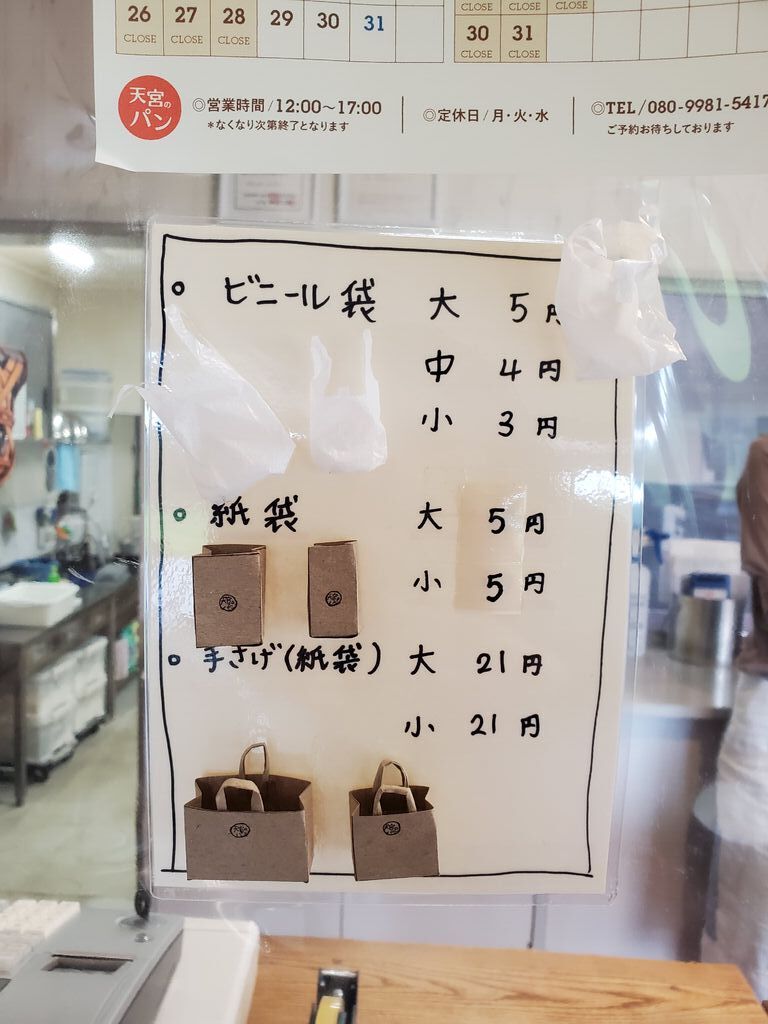 26 27 28 29 30 31
CLOSE CLOSE CLOSE
CLOSE CLOSE CLOSE
30 31
CLOSE CLOSE
天宮の
パン
◎営業時間/12:00〜17:00
*なくなり次第終了となります
◎定休日/月・火・水
◎TEL/080-9981-5417
ご予約お待ちしております
ビニール袋 大 5円
中 4円
小 3円
紙袋 大 5円
小 5円
手さげ(紙袋) 大 21円
小 21円